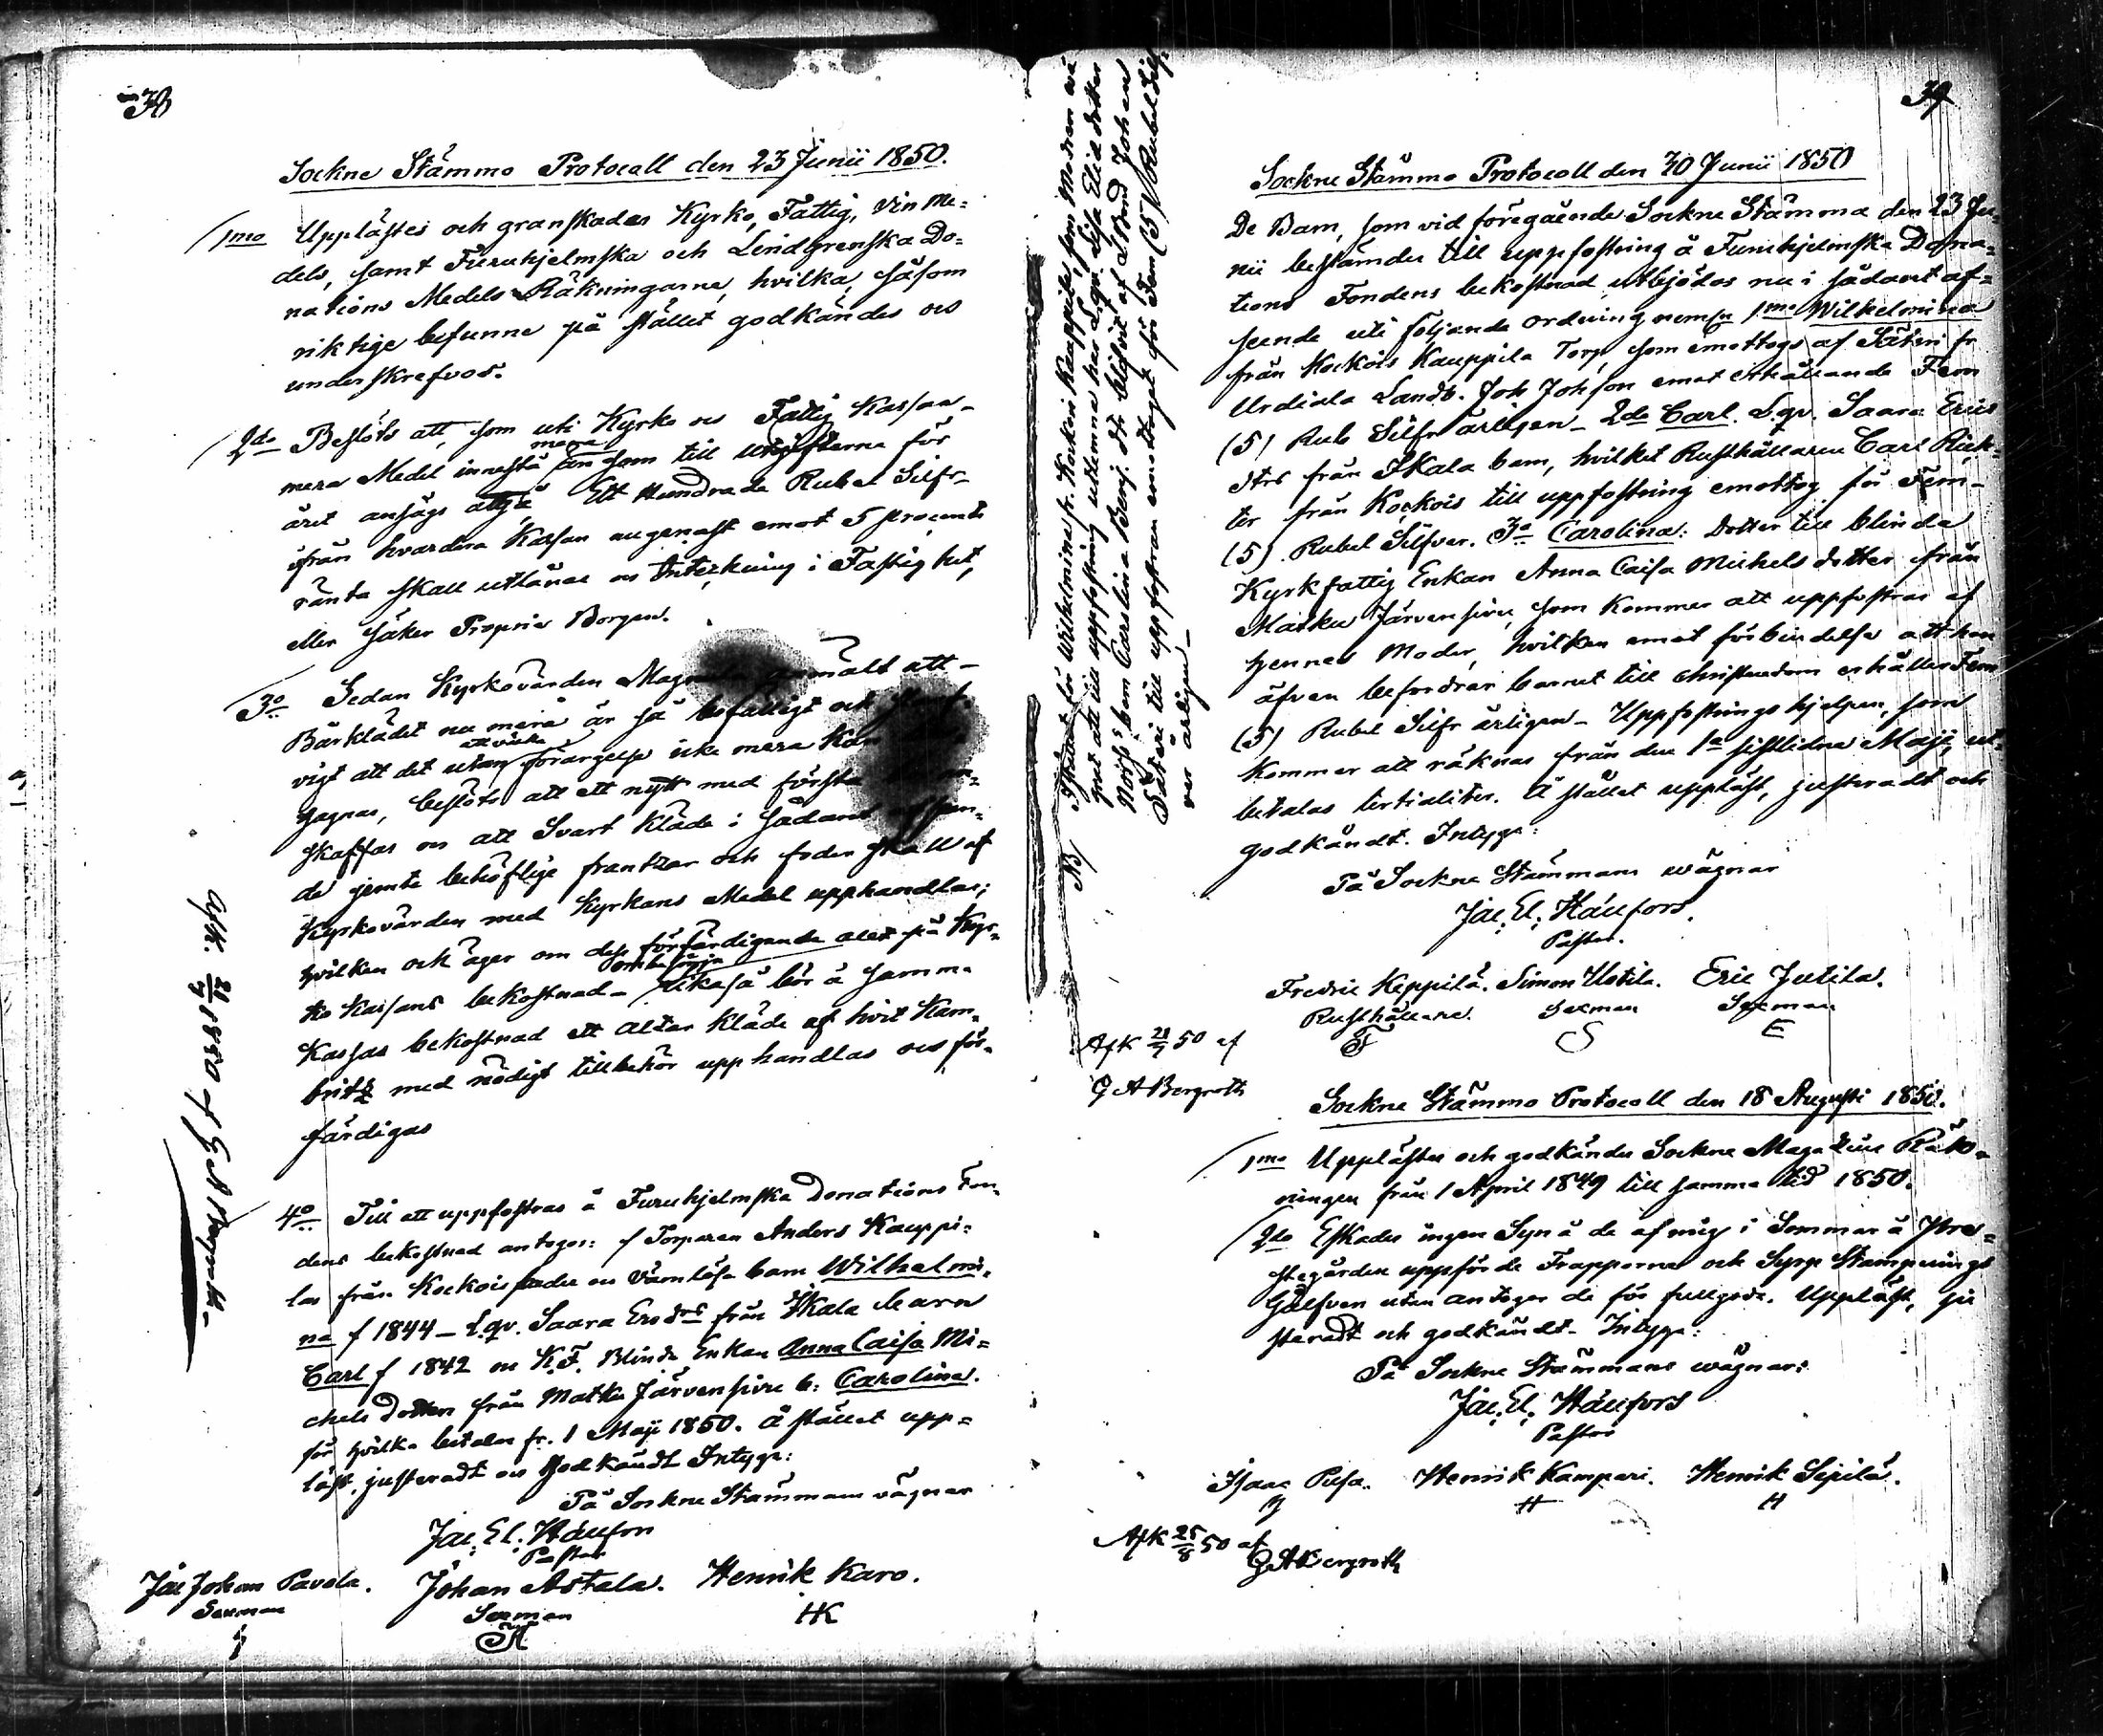 38
Sockne Stämmo Protocoll den 23 Junii 1850.
1mo Upplästes och granskades Kyrko, Fattig, Vin Me=
dels, samt Furuhjelmska och Lindgrenska Do=
nations Medels Räkningarna, hvilka, såsom
riktige befunne på stället godkändes och
underskrefvos.
2do Beslöts att, som uti Kyrko och Fattig Kassan
mera Medel innestå än som till utgifterna för
året anses åtgå Ett Hundrade Rubel Silfr
ifrån hvardera Kassan augenast emot 5 procents
ränta skall utlånas Inteckning i Fastighet,
eller säker Proprie Borgen.
3o Sedan Kyrkovärden anmält att
Bårklädet nu mera är så bofälligt och
vigt att det utan att väcka förargelse icke mera kan
gagnas, beslöts att ett nytt med första
skaffas och att Svart Kläde i sådant
de jemte behöflige frantzar och foder skall af
Kyrkovärden med Kyrkans Medel upphandlas;
hvilken ock äger om dess förfärdigande allt på Kyr=
ombesörja
ko Kassans bekostnad - likaså bör å samma
Kassas bekostnad ett Altar kläde af hvit Kam=
britz med nödigt tillbehör upphandlas och för=
färdigas
4o Till att uppfostras å Furuhjelmska Donations Fon=
dens bekostnad antogos: Torparen Anders Kauppi=
las från Kockois värnlösa barn Wilhelmi=
na f 1844 - Lqv. Saara Ersdr från Skala barn
Carl f 1842 K.F. Blinda Enkan Anna Caisa Mi=
chels Dotters från Matku Järvensivu b: Carolina.
för hvilka betalas fr. 1 Maji 1850. Å stället upp=
läst, justeradt och Godkändt Intyga:
På Sockne Stämmans vägnar
Jac. El. Hänfors
Pastor
Jac Johan Pavola. Johan Astala. Henrik Karo.
Sexman Sexman HK
Afsk. 21/7 1850 af G A Bergroth
39
Sockne Stämmo Protocoll den 30 Junii 1850
De Barn, som vid föregående Sockne Stämma den 23 Ju
nii bestämdes till uppfostring å Furuhjelmska Dona=
tions Fondens bekostnad, utbjödos nu i sådant af=
seende uti följande ordning 1mo Wilhelmina
från Kockois Kauppila Torp, som emottogs af Säteri fr
Urdiala Landb. Joh Johsson emot erhållande Fem
(5) Rub Silfr årligen - 2do Carl. Lqv. Saara Erics
dtrs från Skala barn, hvilket Rusthållaren Carl Rick=
ter från Kockois till uppfostring emottog för Fem
(5) Rubel Silfver. 3o Carolina: Dotter till blinda
Kyrkfattig Enkan Anna Caisa Michels dotter från
Matku Järvensivu, som kommer att uppfostras af
hennes Moder, hvilken emot förbindelse att hon
äfven befordrar barnet till christendom erhåller Fem
(5) Rubel Silfr årligen - Uppfostrings hjelpen, som
kommer att räknas från den 1a sistlidne Maji, ut=
betalas tertialiter. Å stället uppläst, justeradt och
godkändt. Intyga:
På Sockne Stämmans wägnar
Jac. El. Hänfors.
Pastor.
Fredric Keppilä. Simon Ustila. Eric Jutila.
Rusthållare. Sexman Sexman
F S E
NB Istället för Wilhelmina fr. Kockois Kauppila,
Säteri till uppfostran emottaget för Fem (5) Rubel Silf=
ver årligen
Afsk 21/7 50 af
G A Bergroth
Sockne Stämmo Protocoll den 18 Augusti 1850.
1mo Upplästes och godkändes Sockne Magazins Räk=
ningen från 1 April 1849 till samma tid 1850.
2do Eskades ingen Syn å de af mig i Sommar å Pre=
stegården uppförde Trapporna och
Golfven utan antogos de för fullgoda. Uppläst, ju
steradt och godkändt. Intyga:
På Sockne Stämmans wägnar:
Jac. El. Hänfors
Pastor
Isaac Pusa. Henrik Kampari. Henrik Sipilä.
H H
Afsk 25/8 50 af
G A Bergroth